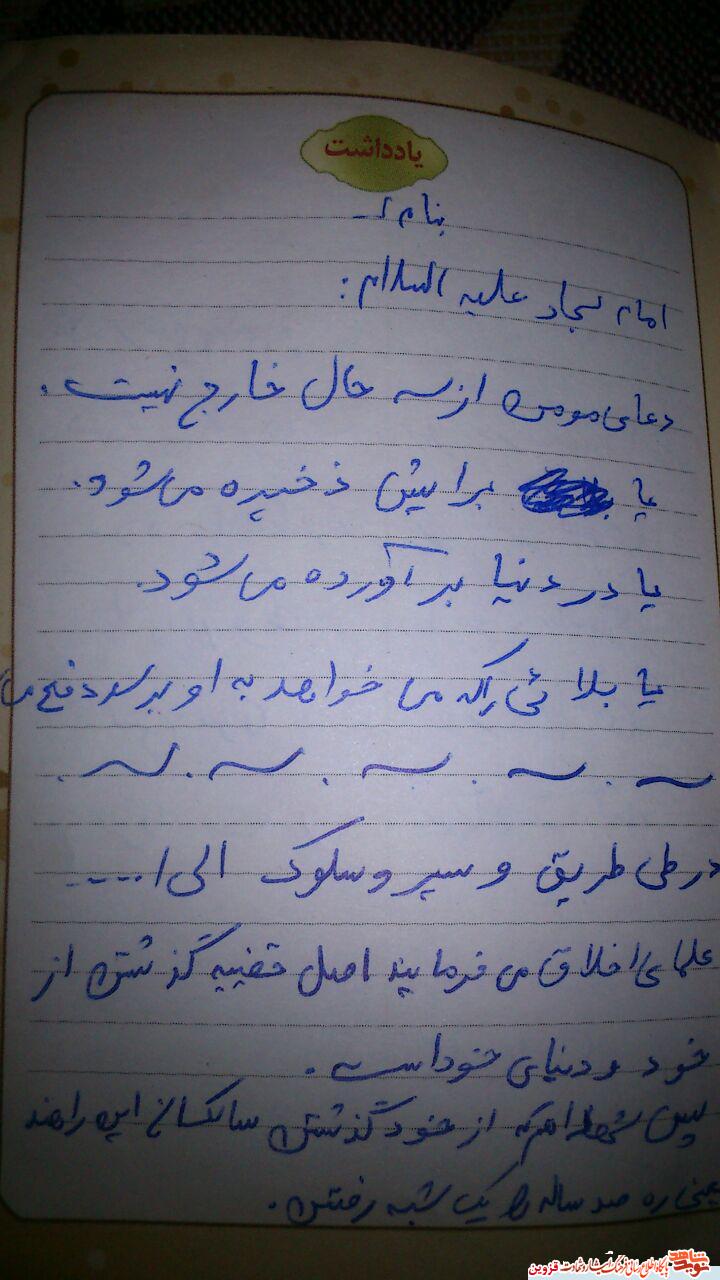 یادداشت
بنام ا...
امام سجاد علیه السلام :
دعای مومن از سه حال خارج نیست .
یا برایش ذخیره می شود .
یا در دنیا برآورده می شود .
یا بلائی را که می خواهد به او برسد دفع می
در طی طریق و سیر و سلوک الی ا.....
علمای اخلاق می فرمایند اصل قضیه گذشتن از
خود و دنیای خود است .
پس شهدا هم که از خود گذشتن سالکان این راهند
یعنی ره صد ساله را یک شبه رفتن .
نوید شاهد
قزوین